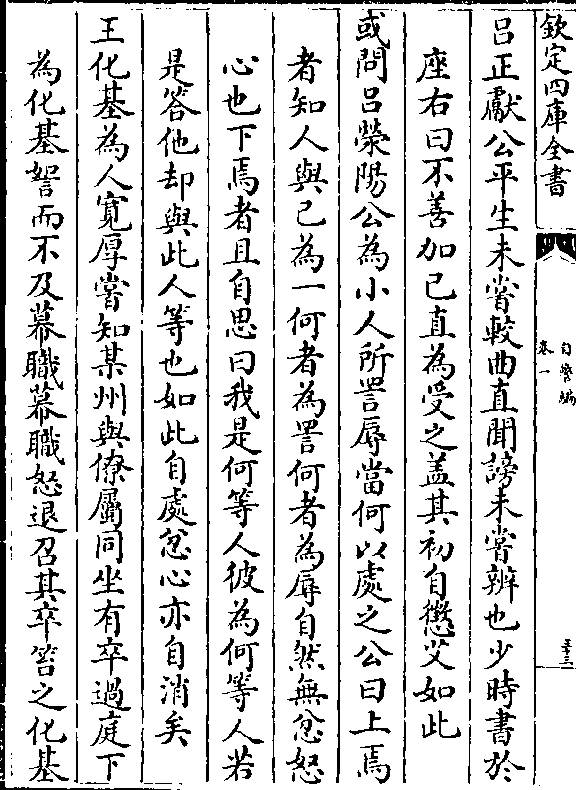 欽定四庫全書
自警編
卷一
三十三
呂正獻公平生未嘗較曲直聞謗未嘗辨也少時書於
座右曰不善加己直為受之蓋其初自懲艾如此
或問呂滎陽公為小人所詈辱當何以處之公曰上焉
者知人與己為一何者為詈何者為辱自然無忿怒
心也下焉者且自思曰我是何等人彼為何等人若
是答他却與此人等也如此自處忿心亦自消矣
王化基為人寬厚嘗知某州與僚屬同坐有卒過庭下
為化基喏而不及幕職幕職怒退召其卒笞之化基